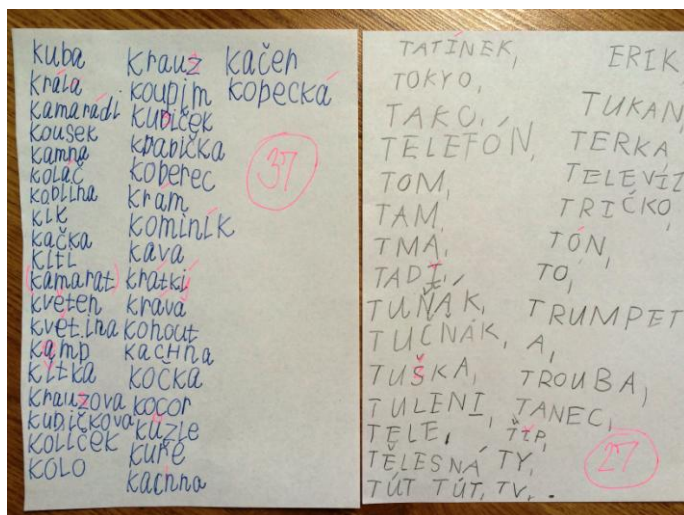 kuba
králí
kamarádi
kousek
kamna
koláč
koblina
klk
kačka
kitl
(kamarat)
květen
květina
kamp
kytka
krauzova
kubičkova
kolíček
kolo
krauž
koupim
kubiček
krabička
koberec
krám
kominík
kava
krátkí
kráva
kohout
kachna
kočka
kocor
kůzle
kuře
kachna
kačer
kopecká
37
TATÍNEK,
TOKYO,
TAKO,
TELEFÓN,
TOM,
TAM,
TMA,
TADÍ,
TUŇÁK,
TUČNÁK,
TUŠKA,
TULENI,
TELE,
TĚLESNÁ
TÚT TÚT, TV,.
ERIK,
TUKAN,
TERKA
TELEVÍZ
TRIČKO,
TÓN,
TO,
TRUMPET
A,
TROUBA,
TANEC,
TY,
27